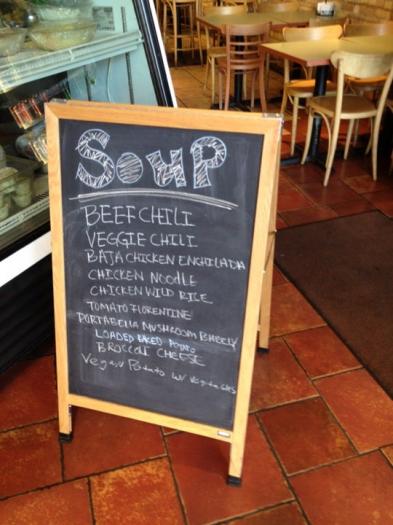 SOUP
BEEF CHILI
VEGGIE CHILI
BAJA CHICKEN ENCHILADA
CHICKEN NOODLE
CHICKEN WILD RICE
TOMATO FLORENTINE
PORTABELLA MUSHROOM &
LOADED BAKED POTATO
BROCCOLI CHEESE
Vegan Potato w/ Vegetables